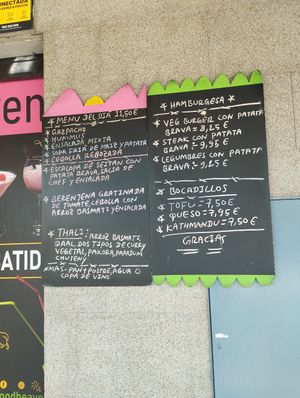 CONECTADA
ven
* MENU DEL DIA 11,50€
* GAZPACHO
* HUMMUS
* ENSALADA MIXTA
* SOPA FRIA DE MAIZ Y PATATA
* CEBOLLA REBOZADA
* ESCALOPA DE SEITAN CON
PATATA BRAVA, SALSA DE
CHEF Y ENSALADA
* BERENJENA GRATINADA
DE TOMATE, CEBOLLA CON
ARROZ BASMATI Y ENSALADA
* THALI: ARROZ BASMATI
DAAL, DOS TIPOS DE CURRY
VEGETAL, PAKORA, PAPADUM
CHUTENY
* MAS-PAN+POSTRE, AGUA O
COPA DE VINO
* HAMBURGESA *
* VEG BURGER CON PATATA
BRAVA = 8,25 €
* STEAK CON PATATA
BRAVA = 9,95 €
* LEGUMBRES CON PATATA
BRAVA = 9,25 €
* BOCADILLOS
* TOFU = 7,50 €
* QUESO = 7,95 €
* KATHMANDU = 7,50 €
GRACIAS
ATID